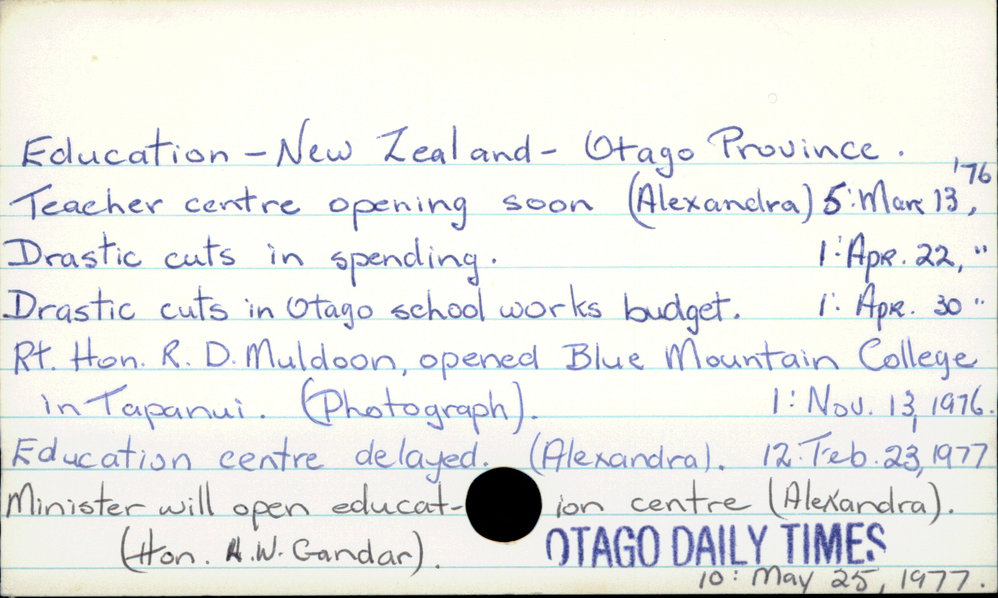 Education - New Zealand - Otago Province.
Teacher centre opening soon (Alexandra) 5: Mar 13, '76
Drastic cuts in spending. 1: Apr. 22, "
Drastic cuts in Otago school works budget. 1: Apr. 30 "
Rt. Hon. R. D. Muldoon, opened Blue Mountain College
in Tapanui. (Photograph). 1: Nov. 13, 1976.
Education centre delayed. (Alexandra). 12: Feb. 23, 1977
Minister will open educat-ion centre (Alexandra).
(Hon. A.W. Gandar). OTAGO DAILY TIMES
10: May 25, 1977.